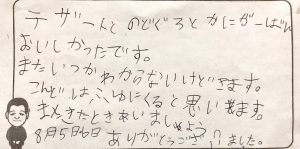 デザートとのどぐろとかにがーばん
おいしかったです。
またいつかわからないけどきます。
こんどは、ふゆにくると思います。
またきたときあいましょう
8月5日6日 ありがとうございました。